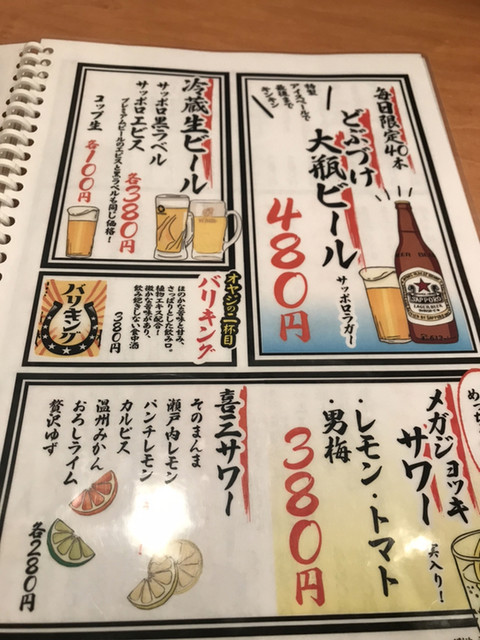 毎日限定40本
どぶづけ
大瓶ビール
サッポロラガー
480円
特製
アイスペールで
最後まで
キンキン
SAPPORO
LAGER BEER
冷蔵生ビール
サッポロ黒ラベル
サッポロエビス
各380円
プレミアムビールのエビスと黒ラベルも同じ価格!
コップ生
各100円
オヤジの一杯目
バリキング
ほのかな苦みと甘み、
さっぱりとした飲み口。
植物エキス配合!
微かな苦味があり、
飲み飽きしない食中酒
380円
バリキング
メガジョッキ
サワー
実入り!
・レモン・トマト
・男梅
380円
喜三サワー
そのまんま
瀬戸内レモン
パンチレモン
カルピス
温州みかん
おろしライム
贅沢ゆず
各280円